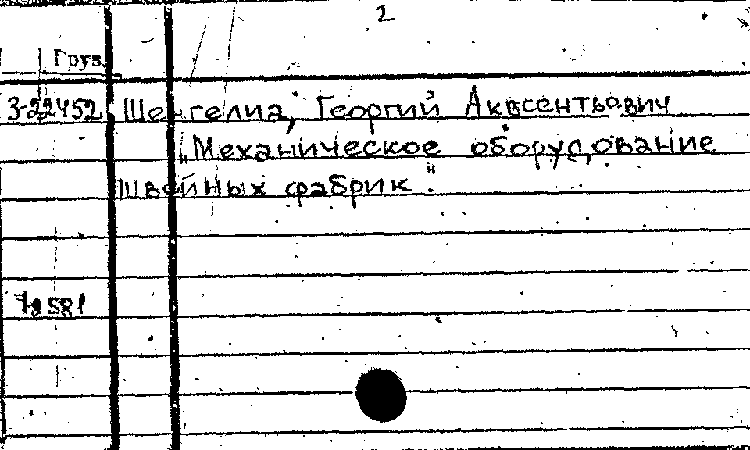 2
Груз.
3-22452 Шенгелиа, Георгий Аквсентьович
„Механическое оборудование
швейных фабрик".